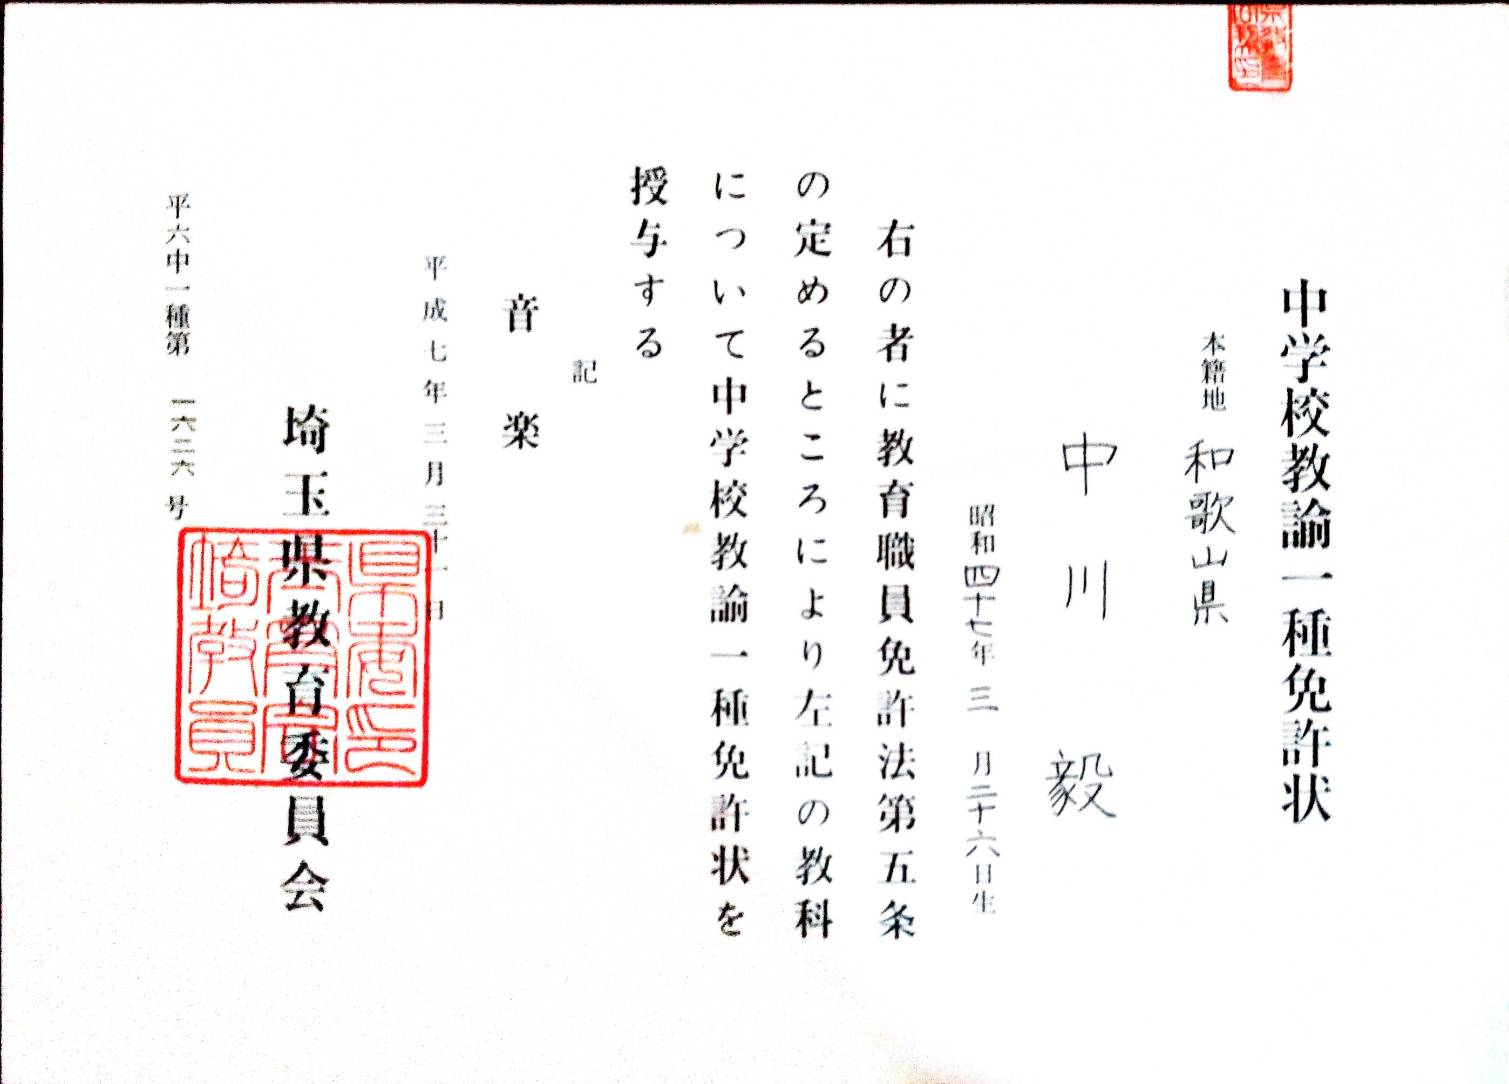 中学校教諭一種免許状
本籍地 和歌山県
中川 毅
昭和四十七年三月二十六日生
右の者に教育職員免許法第五条
の定めるところにより左記の教科
について中学校教諭一種免許状を
授与する
記
音楽
平成七年三月三十一日
埼玉県教育委員会
平六中一種第 一六二六 号